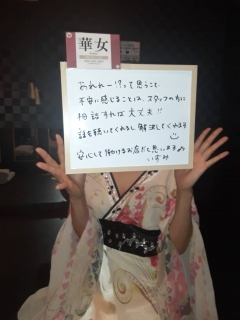 華女
あれれー!?って思うこと、
不安に感じることは、スタッフの方に
相談すれば大丈夫!!
話を聴いてくれるし解決してくれます
安心して働けるお店だと思います
いずみ